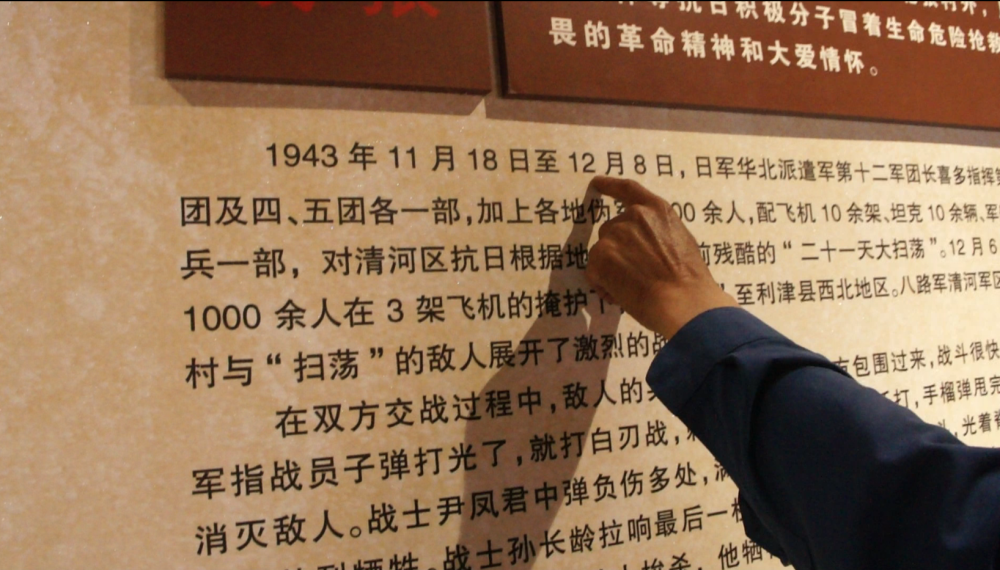 抗日积极分子冒着生命危险抢救
畏的革命精神和大爱情怀。
1943年11月18日至12月8日，日军华北派遣军第十二军团长喜多指挥
团及四、五团各一部，加上各地伪 00余人，配飞机10余架、坦克10余辆、军
兵一部，对清河区抗日根据地 前残酷的“二十一天大扫荡”。12月6
1000余人在3架飞机的掩护下 至利津县西北地区。八路军清河军区
村与“扫荡”的敌人展开了激烈的战 包围过来，战斗很快
在双方交战过程中，敌人的 打，手榴弹甩完
军指战员子弹打光了，就打白刃战， 光着
消灭敌人。战士尹凤君中弹负伤多处，
牺牲。战士孙长龄拉响最后一
他牺